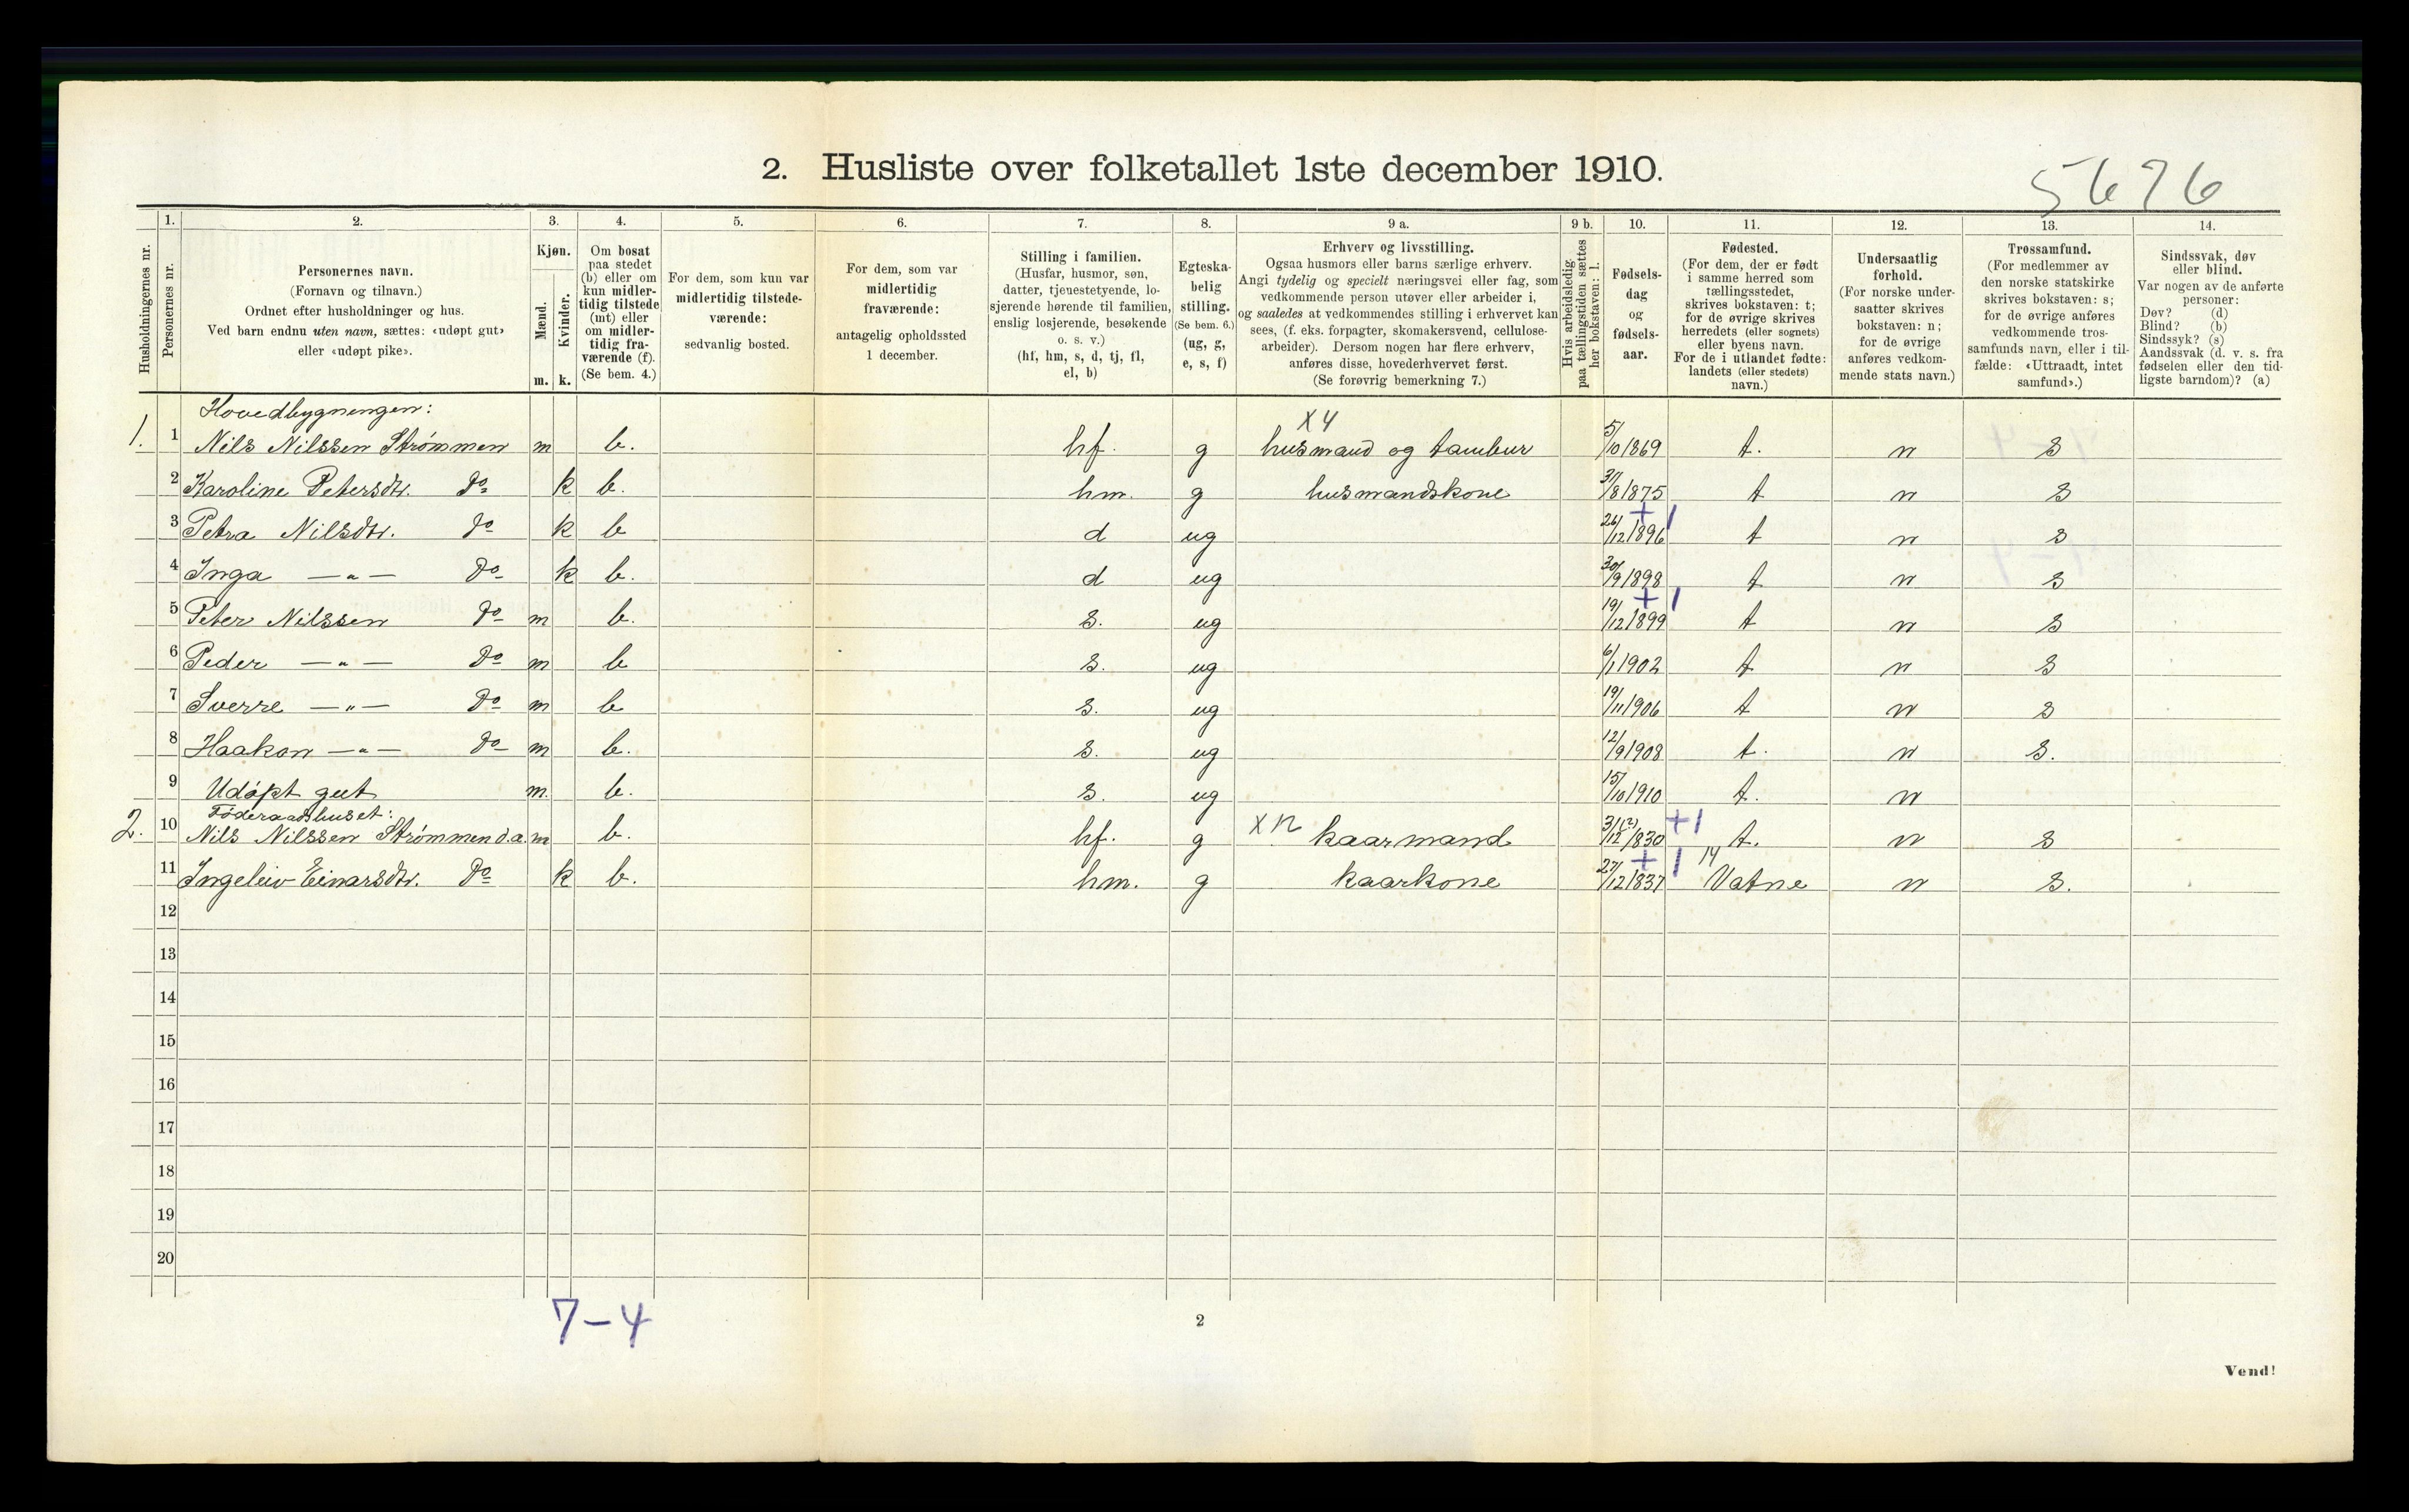 2. Husliste over folketallet 1ste december 1910.
5676
Husholdningernes nr.
1. Personernes nr.
2. Personernes navn.
(Fornavn og tilnavn.)
Ordnet efter husholdninger og hus.
Ved barn endnu uten navn, sættes: «udøpt gut»
eller «udøpt pike».
3. Kjøn.
Mænd. m.
Kvinder. k.
4. Om bosat
paa stedet
(b) eller om
kun midler-
tidig tilstede
(mt) eller
om midler-
tidig fra-
værende (f).
(Se bem. 4.)
5. For dem, som kun var
midlertidig tilstede-
værende:
sedvanlig bosted.
6. For dem, som var
midlertidig
fraværende:
antagelig opholdssted
1 december.
7. Stilling i familien.
(Husfar, husmor, søn,
datter, tjenestetyende, lo-
sjerende hørende til familien,
enslig losjerende, besøkende
o. s. v.)
(hf, hm, s, d, tj, fl,
el, b)
8. Egteska-
belig
stilling.
(Se bem. 6.)
(ug, g,
e, s, f)
9 a. Erhverv og livsstilling.
Ogsaa husmors eller barns særlige erhverv.
Angi tydelig og specielt næringsvei eller fag, som
vedkommende person utøver eller arbeider i,
og saaledes at vedkommendes stilling i erhvervet kan
sees, (f. eks. forpagter, skomakersvend, cellulose-
arbeider). Dersom nogen har flere erhverv,
anføres disse, hovederhvervet først.
(Se forøvrig bemerkning 7.)
9 b. Hvis arbeidsledig
paa tællingstiden sættes
her bokstaven: l.
10. Fødsels-
dag
og
fødsels-
aar.
11. Fødested.
(For dem, der er født
i samme herred som
tællingsstedet,
skrives bokstaven: t;
for de øvrige skrives
herredets (eller sognets)
eller byens navn.
For de i utlandet fødte:
landets (eller stedets)
navn.)
12. Undersaatlig
forhold.
(For norske under-
saatter skrives
bokstaven: n;
for de øvrige
anføres vedkom-
mende stats navn.)
13. Trossamfund.
(For medlemmer av
den norske statskirke
skrives bokstaven: s;
for de øvrige anføres
vedkommende tros-
samfunds navn, eller i til-
fælde: «Uttraadt, intet
samfund».)
14. Sindssvak, døv
eller blind.
Var nogen av de anførte
personer:
Døv? (d)
Blind? (b)
Sindssyk? (s)
Aandssvak (d. v. s. fra
fødselen eller den tid-
ligste barndom)? (a)
Hovedbygningen: X 4
1. 1 Nils Nilssen Strømmen m b. hf. g husmand og tambur 5/10 1869 t. n s
2 Karoline Petersdtr. Do k b. hm. g husmandskone 31/8 1875 t n s
3 Petra Nilsdtr. do k b d ug 26/12 1896 + 1 t n s
4 Inga —"— Do k b. d ug 30/9 1898 t n s
5 Peter Nilssen Do m b. s. ug 19/12 1899 + 1 t n s
6 Peder —"— Do m b s. ug 6/1 1902 t n s
7 Sverre —"— Do m b s. ug 19/11 1906 t n s
8 Haakon —"— Do m b. s. ug 12/9 1908 t. n s.
9 Udøpt gut m. b. s. ug 15/10 1910 t. n
Føderaadshuset:
2. 10 Nils Nilssen Strømmen d.a. m b. hf. g X 12 kaarmand 31(?)/12 1830 +1 t. n s
11 Ingeleiv Einarsdtr. Do k b. hm. g kaarkone 27/12 1837 + 1 14 Vatne n s.
12
13
14
15
16
17
18
19
20
7-4
2
Vend!